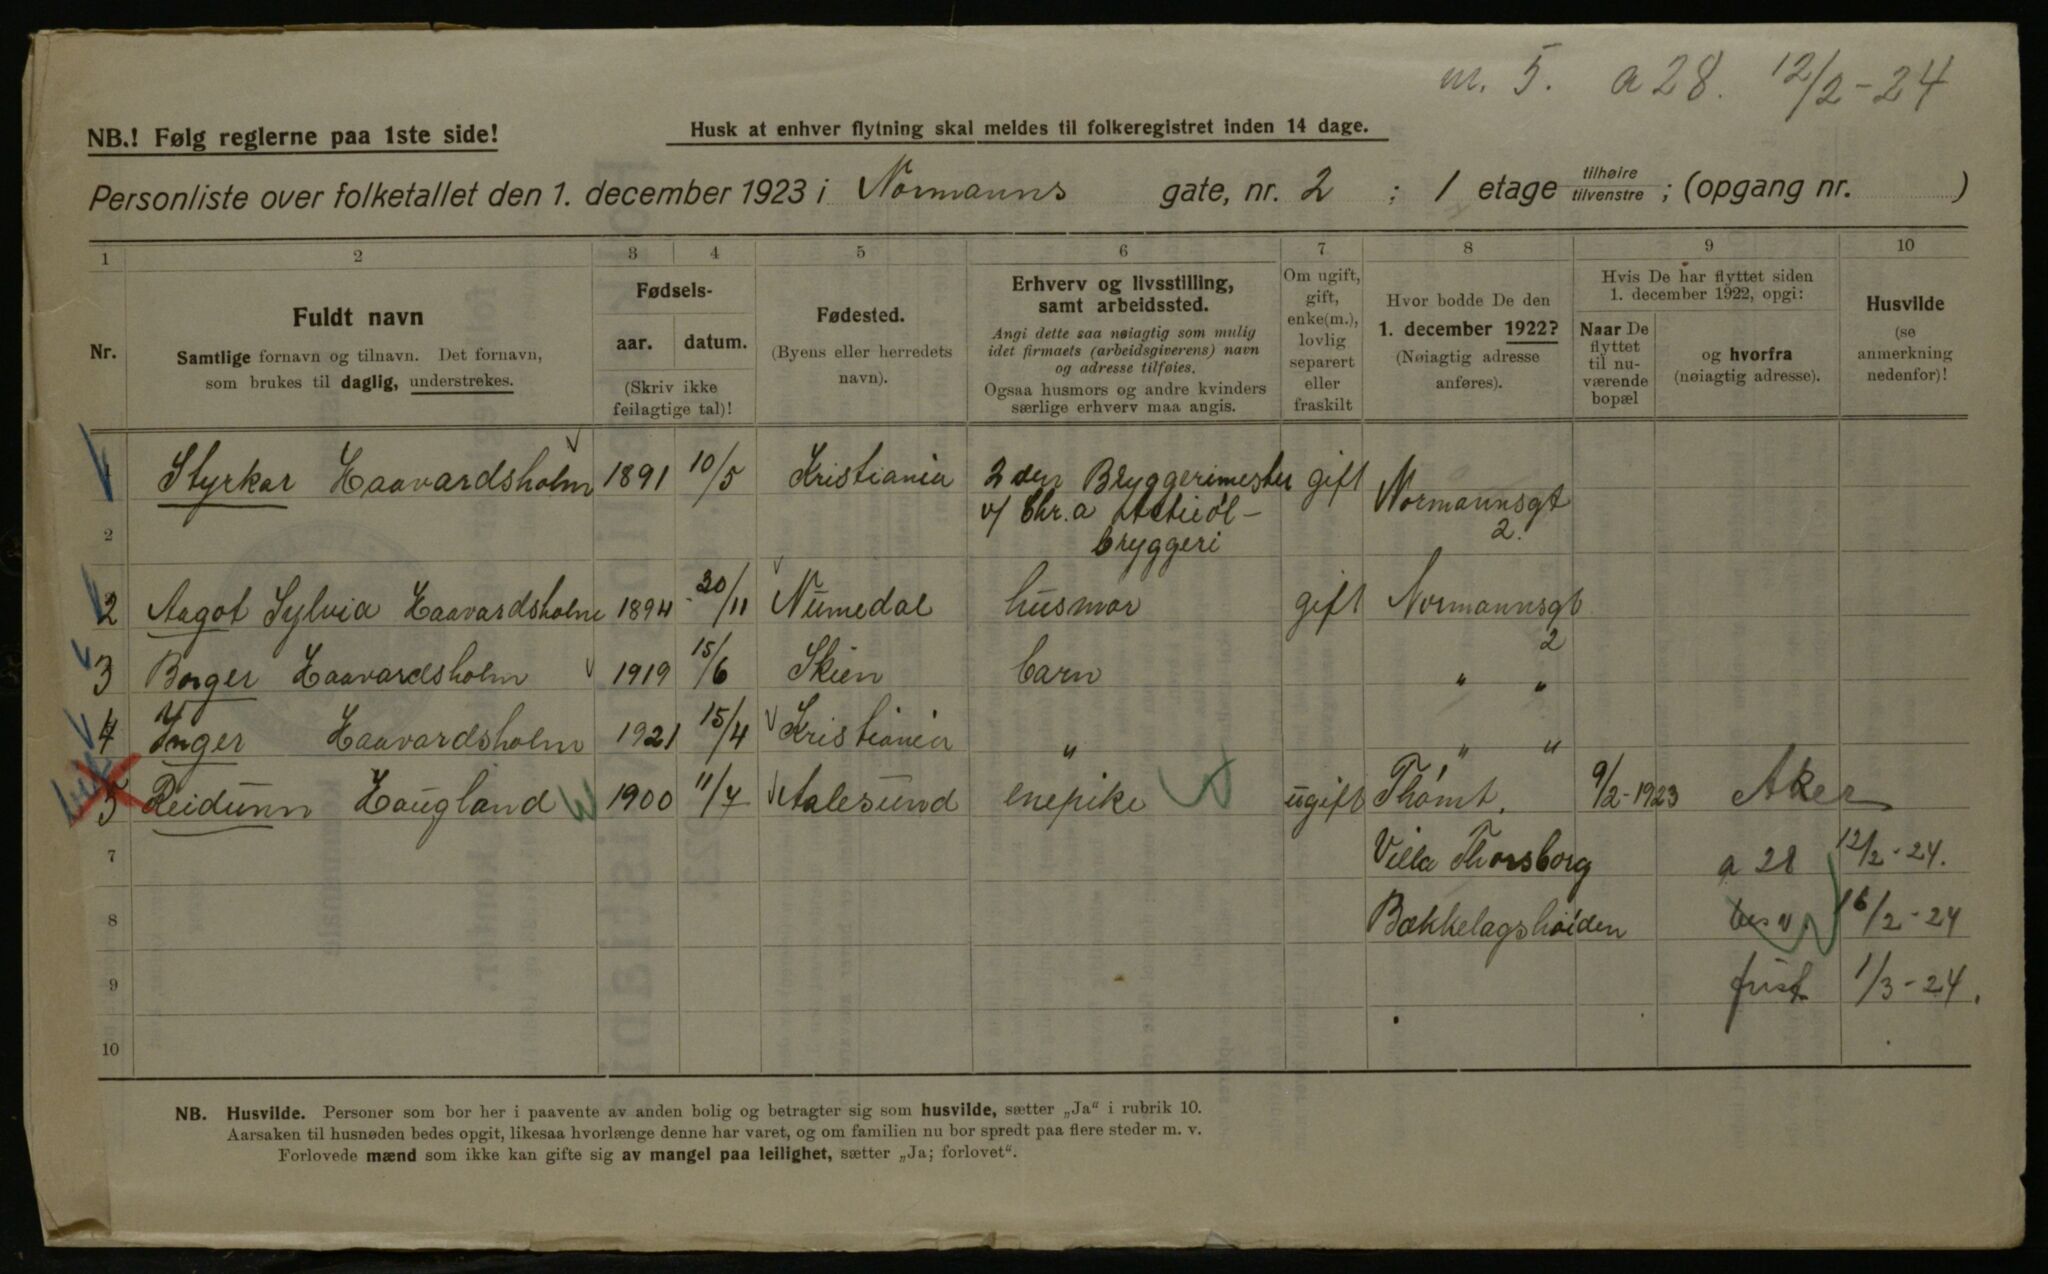 m. 5. a 28. 12/2-24
NB.! Følg reglerne paa 1ste side!
Husk at enhver flytning skal meldes til folkeregistret inden 14 dage.
Personliste over folketallet den 1. december 1923 i Normanns gate, nr. 2 ; 1 etage tilhøire tilvenstre ; (opgang nr. )
1 2 3 4 5 6 7 8 9 10
Nr.
Fuldt navn
Samtlige fornavn og tilnavn. Det fornavn,
som brukes til daglig, understrekes.
Fødsels-
aar. datum.
(Skriv ikke
feilagtige tal)!
Fødested.
(Byens eller herredets
navn).
Erhverv og livsstilling,
samt arbeidssted.
Angi dette saa nøiagtig som mulig
idet firmaets (arbeidsgiverens) navn
og adresse tilføies.
Ogsaa husmors og andre kvinders
særlige erhverv maa angis.
Om ugift,
gift,
enke(m.),
lovlig
separert
eller
fraskilt
Hvor bodde De den
1. december 1922?
(Nøiagtig adresse
anføres).
Hvis De har flyttet siden
1. december 1922, opgi:
Naar De
flyttet
til nu-
værende
bopæl
og hvorfra
(nøiagtig adresse).
Husvilde
(se
anmerkning
nedenfor)!
1 Styrkar Haavardsholm 1891 10/5 Kristiania 2den Bryggerimester gift Normannsgt
2 v/ Chr.a Actieøl- 2.
bryggeri
2 Aagot Sylvia Haavardsholm 1894 30/11 Numedal husmor gift Normannsgt
2
3 Borger Haavardsholm 1919 15/6 Skien barn " "
4 Inger Haavardsholm 1921 15/4 Kristiania " " "
5 Reidunn Haugland 1900 11/7 Aalesund enepike ugift Thomt. 9/2-1923 Aker
7 Villa Thorsborg a 28 12/2-24.
8 Bækkelagshøiden besv. 16/2-24
9 frist 1/3-24.
10
NB. Husvilde. Personer som bor her i paavente av anden bolig og betragter sig som husvilde, sætter „Ja“ i rubrik 10.
Aarsaken til husnøden bedes opgit, likesaa hvorlænge denne har varet, og om familien nu bor spredt paa flere steder m. v.
Forlovede mænd som ikke kan gifte sig av mangel paa leilighet, sætter „Ja; forlovet“.